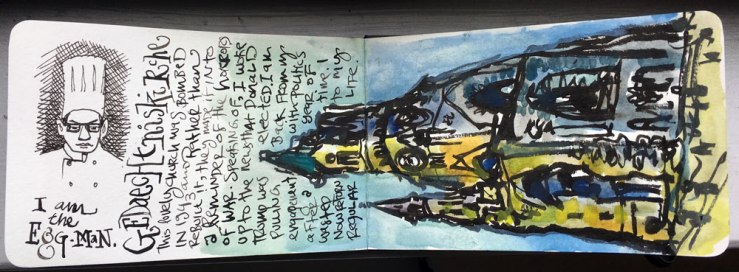 I am
the
EGG-MAN.
GEDAECHTNISKIRCHE
This lovely church was bombed
in 1943 and rather than
rebuild it, they made it into
a reminder of the horrors
of war. Speaking of, I woke
up to the news that Donald
Trump was elected. I am
pulling back from my
engagement with politics
after a year of
wasted time. I
now return to my
regular life.